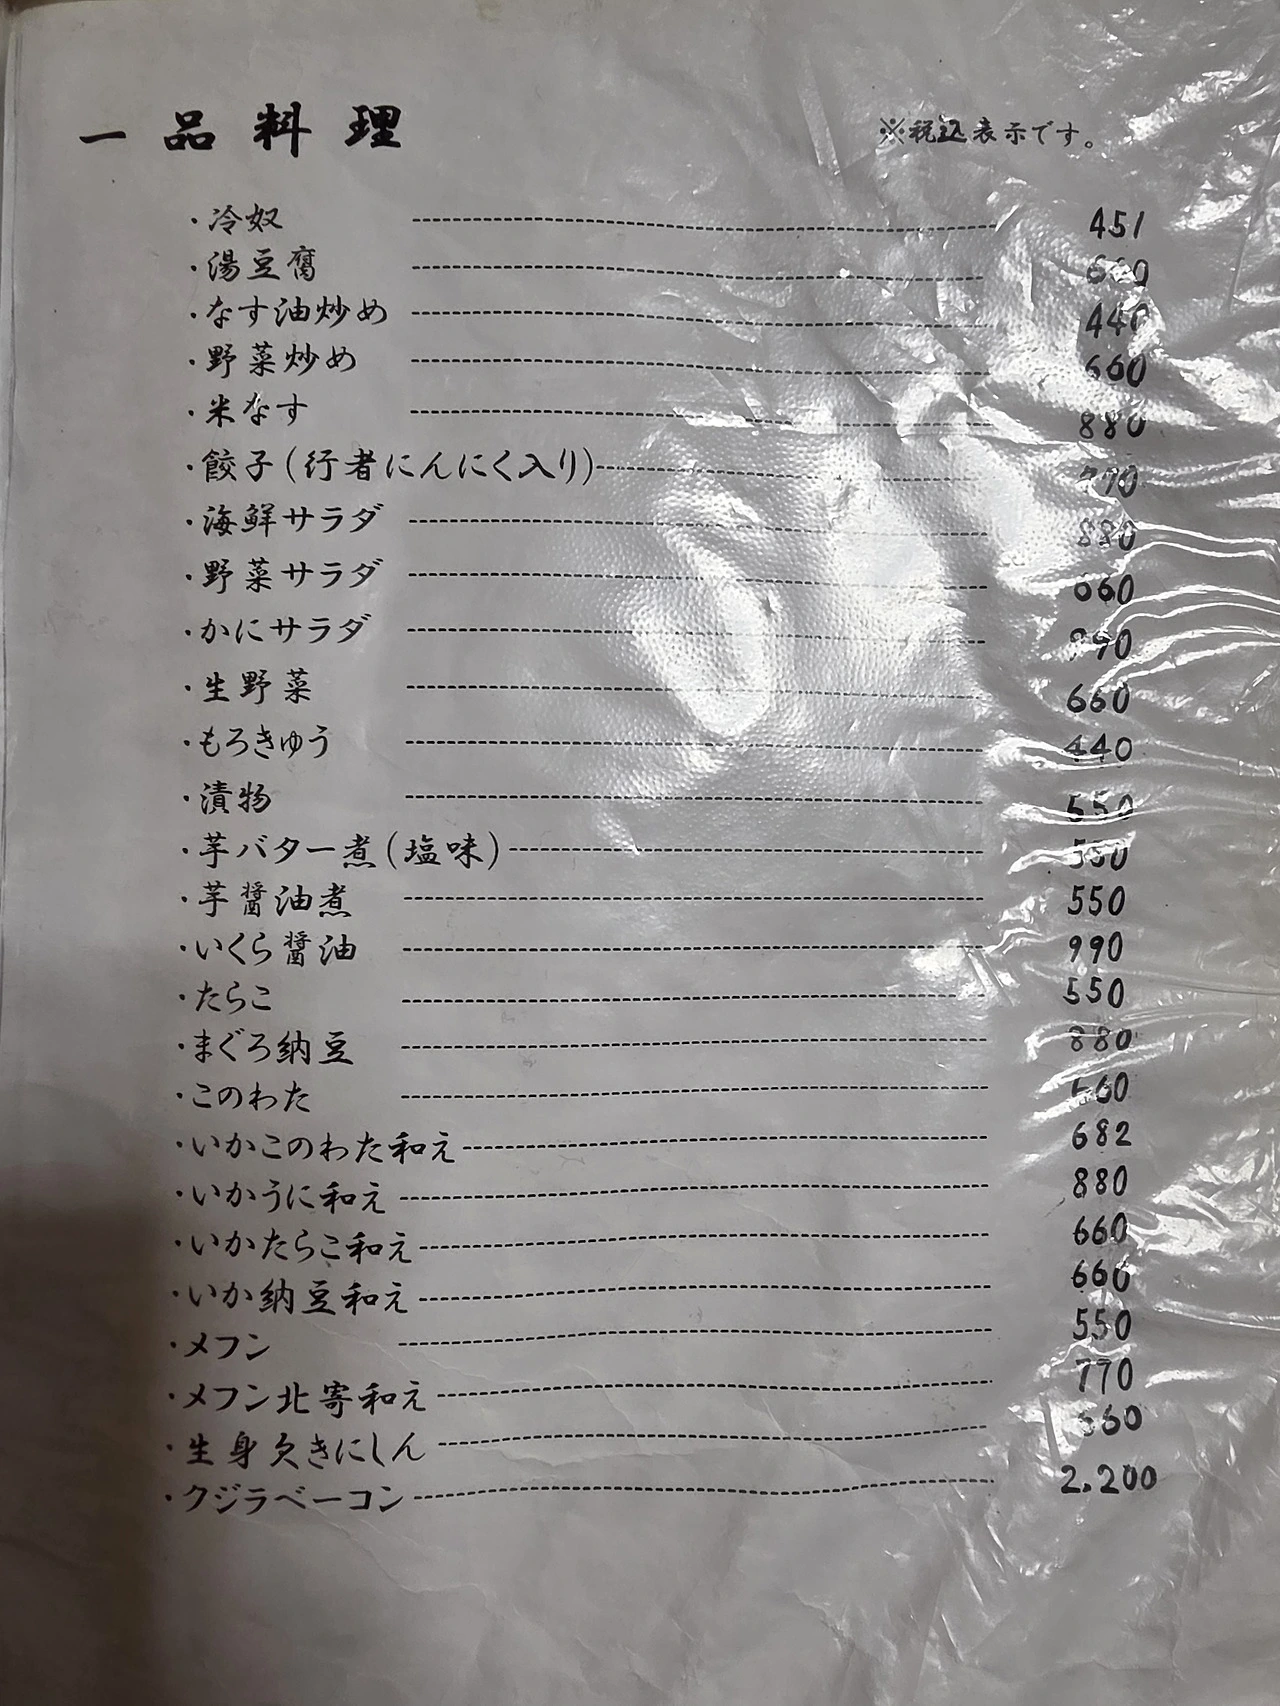 一品料理 ※税込表示です。
・冷奴 451
・湯豆腐 660
・なす油炒め 440
・野菜炒め 660
・米なす 880
・餃子(行者にんにく入り) 770
・海鮮サラダ 880
・野菜サラダ 660
・かにサラダ 990
・生野菜 660
・もろきゅう 440
・漬物 550
・芋バター煮(塩味) 550
・芋醤油煮 550
・いくら醤油 990
・たらこ 550
・まぐろ納豆 880
・このわた 660
・いかこのわた和え 682
・いかうに和え 880
・いかたらこ和え 660
・いか納豆和え 660
・メフン 550
・メフン北寄和え 770
・生身欠きにしん
・クジラベーコン 2.200